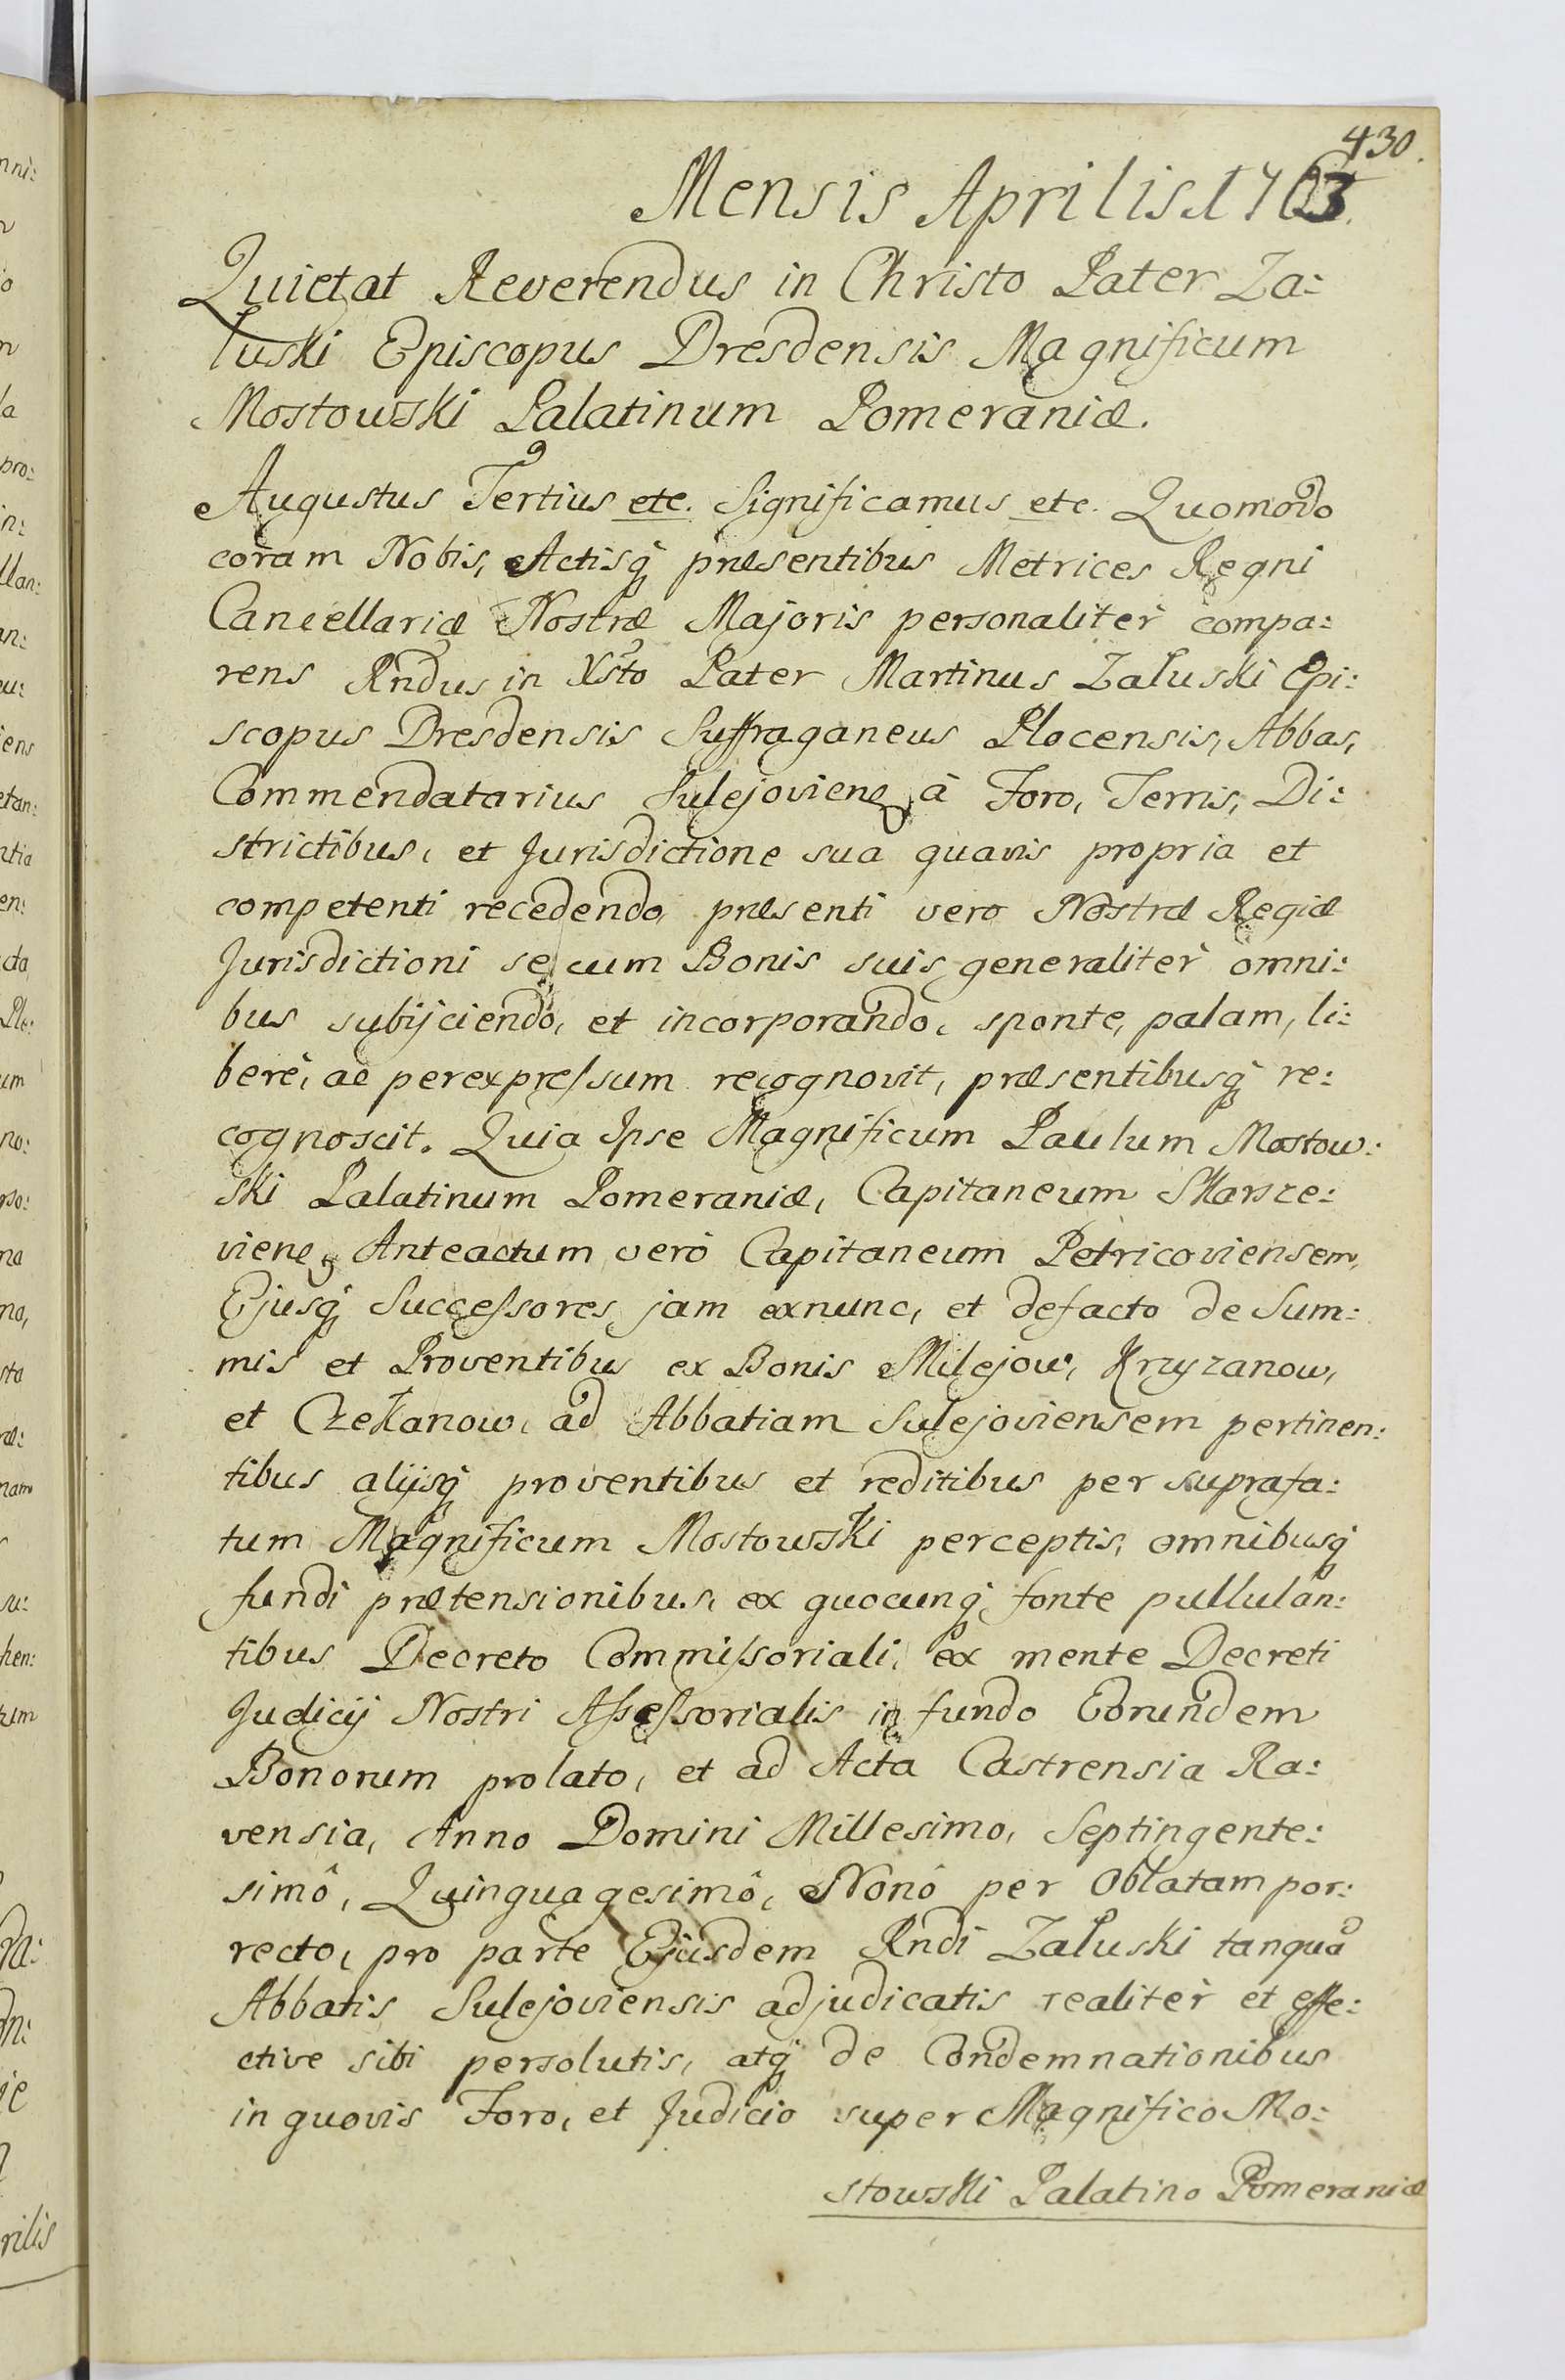 430.
Mensis Aprilis 1763.
Quietat Reverendus in Christo Pater Za:
łuski Episcopus Dresdensis Magnificum
Mostowski Palatinum Pomeraniæ.
Augustus Tertius etc. Significamus etc. Quomodo
coram Nobis, Actisq́ præsentibus Metrices Regni
Cancellariæ Nostræ Majoris personalitèr compa:
rens Rndus in Xsto Pater Martinus Załuski Epi:
scopus Dresdensis Suffraganeus Plocensis, Abbas,
Commendatarius Sulejoviens, à Foro, Terris, Di:
strictibus, et Jurisdictione sua quavis propria et
competenti recedendo, præsenti vero Nostræ Regiæ
Jurisdictioni se cum Bonis suis generalitèr omni:
bus subijciendo, et incorporando, sponte, palam, li:
berè, ac perexpressum recognovit, præsentibusq́ re:
cognoscit. Quia Ipse Magnificum Paulum Mostow:
ski Palatinum Pomeraniæ, Capitaneum Skarsze:
viens, Anteactum verò Capitaneum Petricoviensem,
Ejusq́ Successores jam exnunc, et defacto de Sum:
mis et Proventibus ex Bonis Milejow, Krzyzanow,
et Czekanow, ad Abbatiam Sulejoviensem pertinen:
tibus alijsq́ proventibus et reditibus per suprafa:
tum Magnificum Mostowski perceptis, omnibusq́
fundi prætensionibus, ex quocunq́ fonte pullulan:
tibus Decreto Commissoriali, ex mente Decreti
Judicij Nostri Assessorialis in fundo Eorundem
Bonorum prolato, et ad Acta Castrensia Ra:
vensia, Anno Domini Millesimo, Septingente:
simô, Quinquagesimô, Nonô per Oblatam por:
recto, pro parte Ejusdem Rndi Załuski tanquã
Abbatis Sulejoviensis adjudicatis realitèr et effe:
ctive sibi persolutis, atq́ de Condemnationibus
in quovis Foro, et Judicio super Magnifico Mo:
stowski Palatino Pomeraniæ